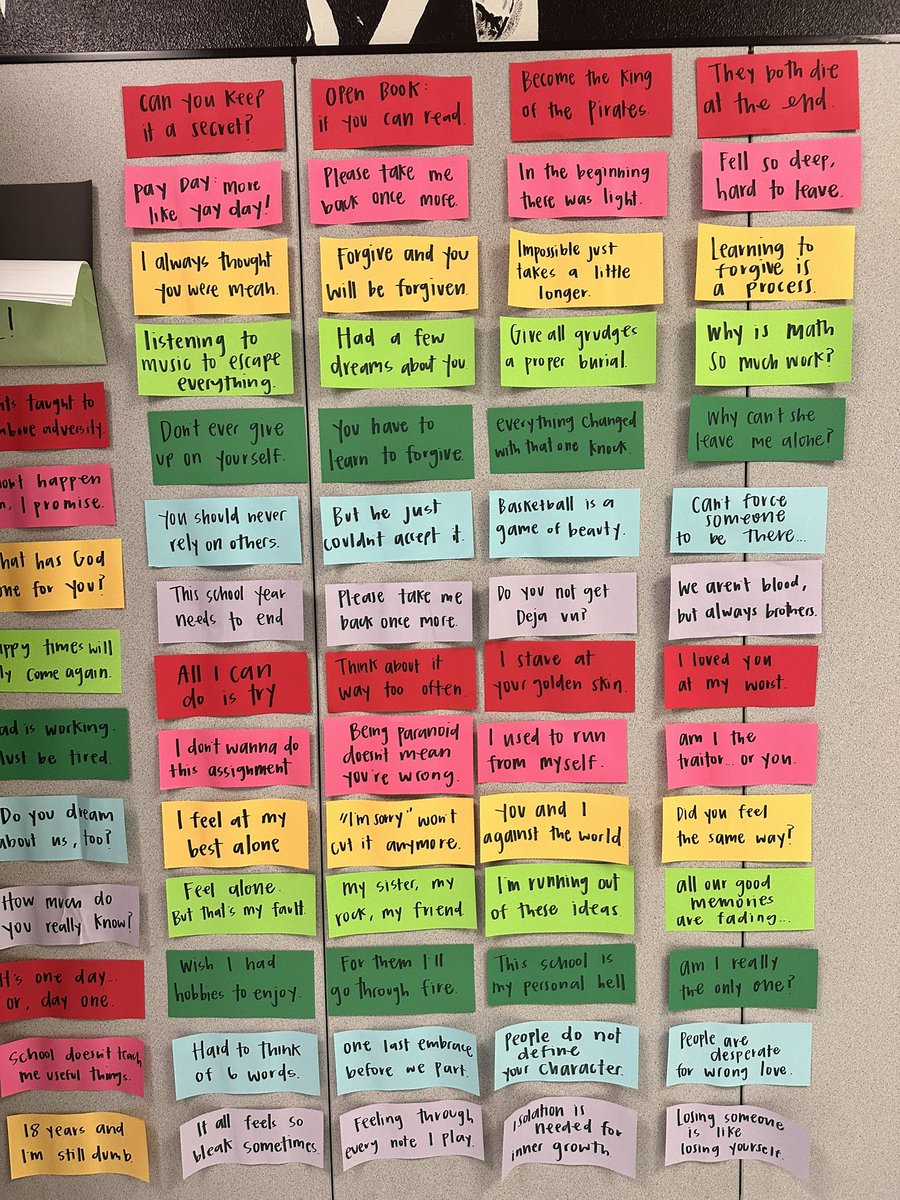 !
nts taught to
above adversity.
on't happen
, I promise.
hat has God
one for you?
appy times will
ly come again.
ad is working.
ust be tired.
Do you dream
about us, too?
How much do
you really know?
It's one day...
or, day one.
School doesn't teach
me useful things.
18 years and
I'm still dumb.
Can you keep
it a secret?
Pay Day: more
like yay day!
I always thought
you were mean.
listening to
music to escape
everything.
Don't ever give
up on yourself.
You should never
rely on others.
This school year
needs to end
All I can
do is try
I don't wanna do
this assignment
I feel at my
best alone
Feel alone.
But that's my fault.
Wish I had
hobbies to enjoy.
Hard to think
of 6 words.
It all feels so
bleak sometimes.
Open Book:
if you can read.
Please take me
back once more.
Forgive and you
will be forgiven.
Had a few
dreams about you
You have to
learn to forgive.
But he just
couldn't accept it.
Please take me
back once more.
Think about it
way too often.
Being paranoid
doesn't mean
you're wrong.
"I'm sorry" won't
cut it anymore.
My sister, my
rock, my friend.
For them I'll
go through fire.
One last embrace
before we part.
Feeling through
every note I play.
Become the King
of the Pirates.
In the beginning
there was light.
Impossible just
takes a little
longer.
Give all grudges
a proper burial.
everything changed
with that one knock.
Basketball is a
game of beauty.
Do you not get
Deja vu?
I stare at
your golden skin.
I used to run
from myself.
You and I
against the world
I'm running out
of these ideas.
This school is
my personal hell
People do not
define
your character.
Isolation is
needed for
inner growth.
They both die
at the end.
Fell so deep,
hard to leave.
Learning to
forgive is
a process.
Why is math
so much work?
Why can't she
leave me alone?
Can't force
someone
to be there...
We aren't blood,
but always brothers.
I loved you
at my worst.
am I the
traitor... or you.
Did you feel
the same way?
all our good
memories
are fading...
am I really
the only one?
People are
desperate
for wrong love.
Losing someone
is like
losing yourself.